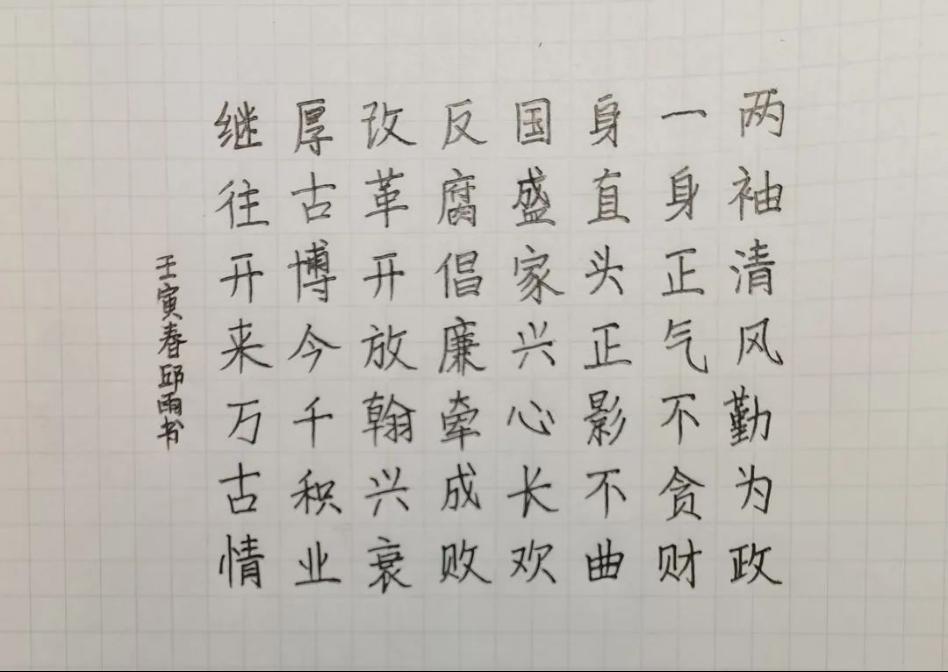 两袖清风勤为政
一身正气不贪财
身直头正影不曲
国盛家兴心长欢
反腐倡廉牵成败
改革开放翰兴衰
厚古博今千积业
继往开来万古情
壬寅春邱雨书